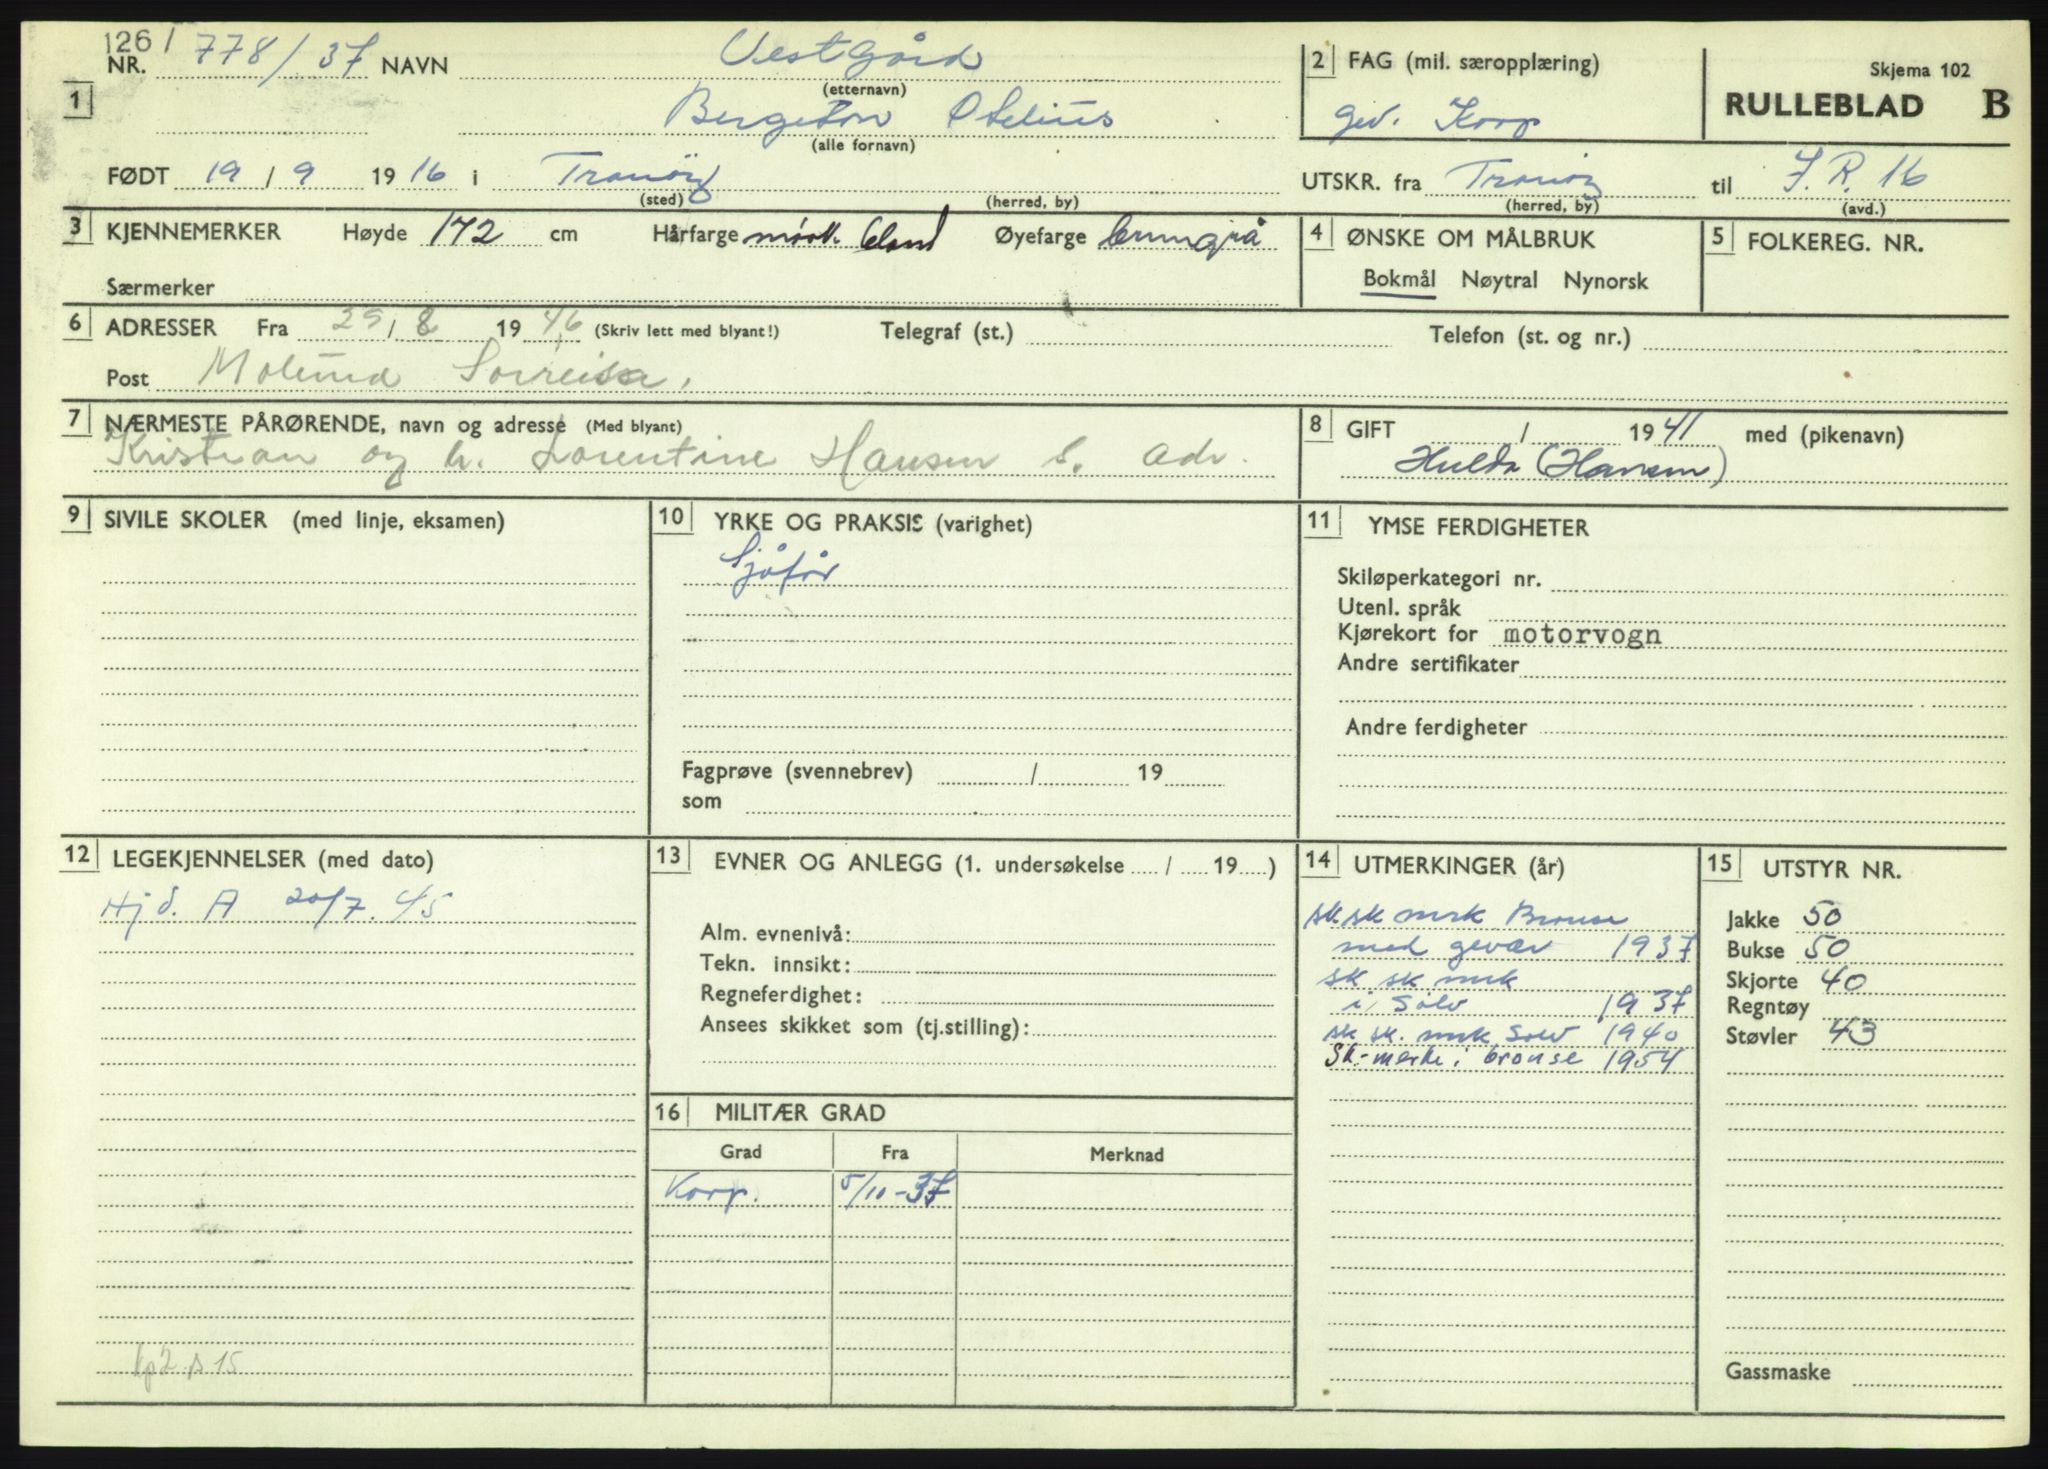 126/
NR. 778/37 NAVN Vestgård
(etternavn)
1
Bergeton Otelius
(alle fornavn)
FØDT 19/9 1916 i Tranöy
(sted) (herred, by)
2 FAG (mil. særopplæring)
gev. Korp
Skjema 102
RULLEBLAD B
UTSKR. fra Tranöy til J.R. 16
(herred, by) (avd.)
3 KJENNEMERKER Høyde 172 cm Hårfarge mørk. bland Øyefarge brungrå
Særmerker
4 ØNSKE OM MÅLBRUK
Bokmål Nøytral Nynorsk
5 FOLKEREG. NR.
6 ADRESSER Fra 29/8 1946 (Skriv lett med blyant!) Telegraf (st.) Telefon (st. og nr.)
Post Molund Sørreisa.
7 NÆRMESTE PÅRØRENDE, navn og adresse (Med blyant)
Kristian og h. Lorentine Hansen s. adr.
8 GIFT / 1941 med (pikenavn)
Hulda (Hansen)
9 SIVILE SKOLER (med linje, eksamen)
10 YRKE OG PRAKSIS (varighet)
Sjåfør
Fagprøve (svennebrev) / 19
som
11 YMSE FERDIGHETER
Skiløperkategori nr.
Utenl. språk
Kjørekort for motorvogn
Andre sertifikater
Andre ferdigheter
12 LEGEKJENNELSER (med dato)
Hjd. A 20/7. 45
kp2 s 15
13 EVNER OG ANLEGG (1. undersøkelse / 19 )
Alm. evnenivå:
Tekn. innsikt:
Regneferdighet:
Ansees skikket som (tj.stilling):
16 MILITÆR GRAD
Grad Fra Merknad
Korp. 5/10-37
14 UTMERKINGER (år)
sk.sk mrk Bronse
med gevær 1937
sk sk mrk
i Sølv 1937
sk sk. mrk Sølv 1940
Sk.-merke i bronse 1954
15 UTSTYR NR.
Jakke 50
Bukse 50
Skjorte 40
Regntøy
Støvler 43
Gassmaske